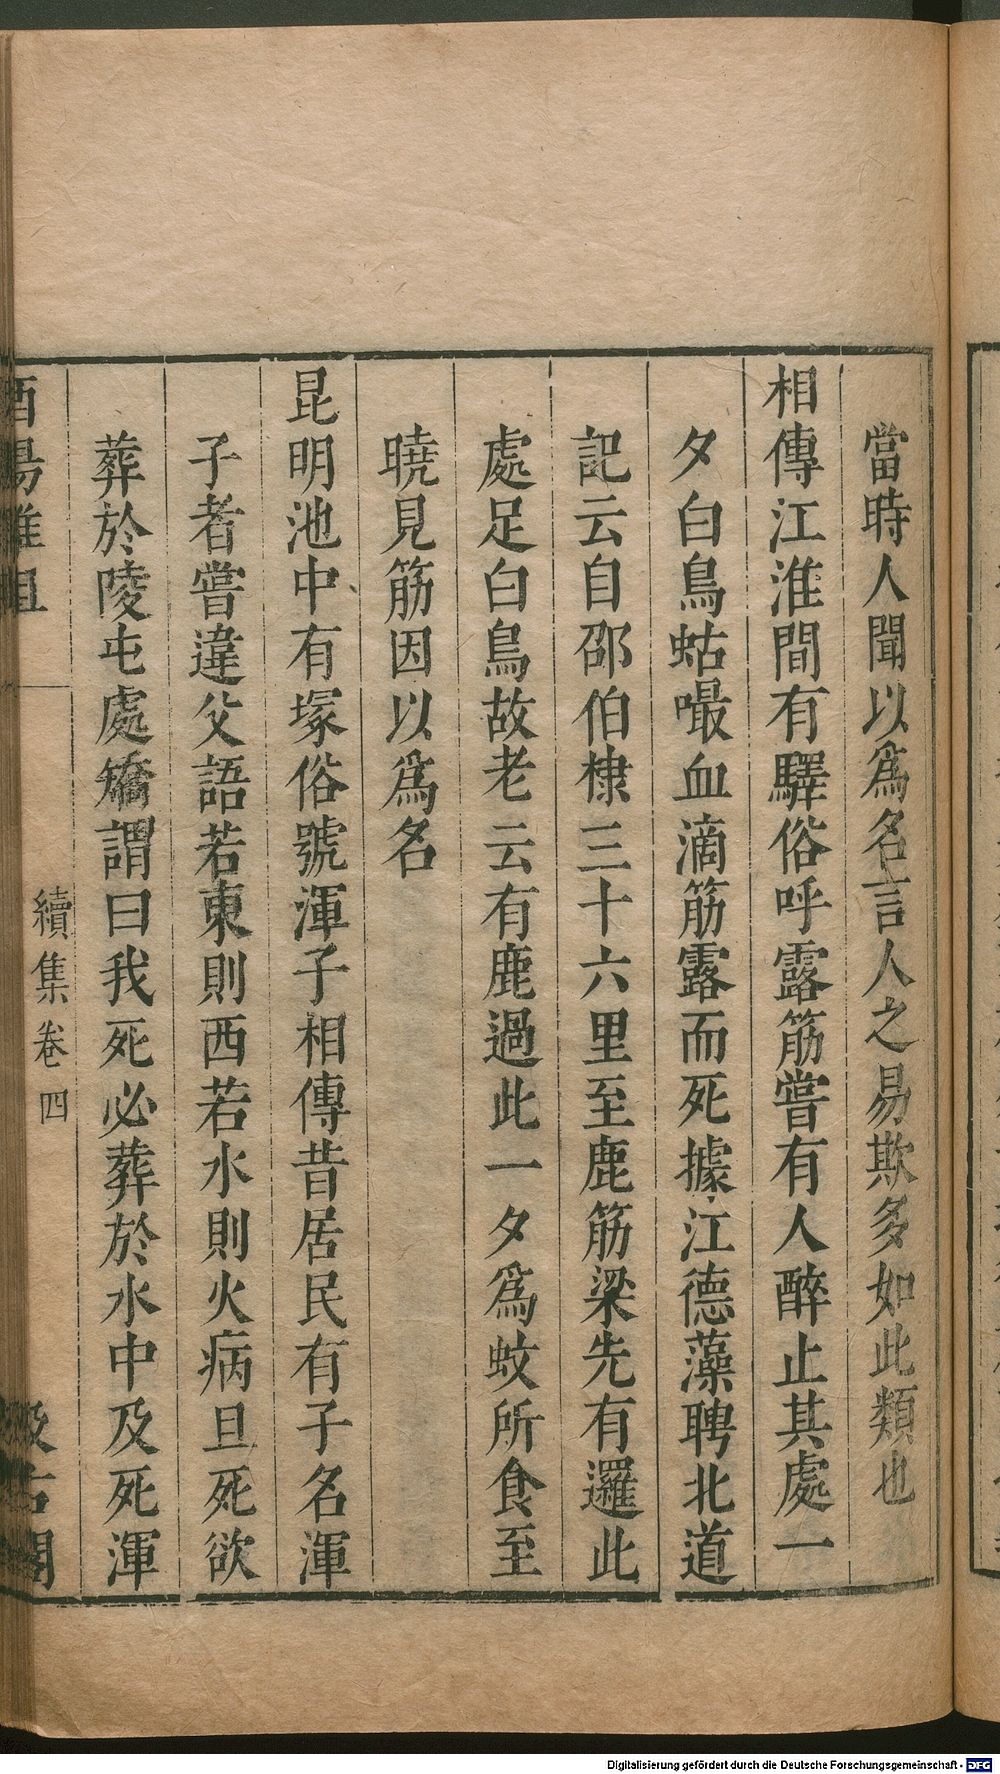 當時人聞以爲名言人之易欺多如此類也
相傳江淮間有驛俗呼露筋嘗有人醉止其處一
夕白鳥蛄嘬血滴筋露而死據江德藻聘北道
記云自邵伯棣三十六里至鹿筋梁先有邏此
處足白鳥故老云有鹿過此一夕爲蚊所食至
曉見筋因以爲名
昆明池中有塚俗號渾子相傳昔居民有子名渾
子者嘗違父語若東則西若水則火病且死欲
葬於陵屯處矯謂曰我死必葬於水中及死渾
酉陽雜俎 續集卷四 汲古閣
Digitalisierung gefördert durch die Deutsche Forschungsgemeinschaft - DFG